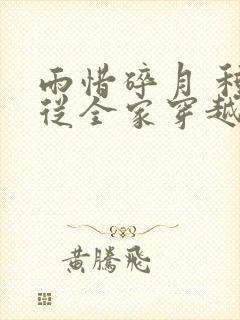 雨惜碎月 種
從全家穿越
黃騰飛